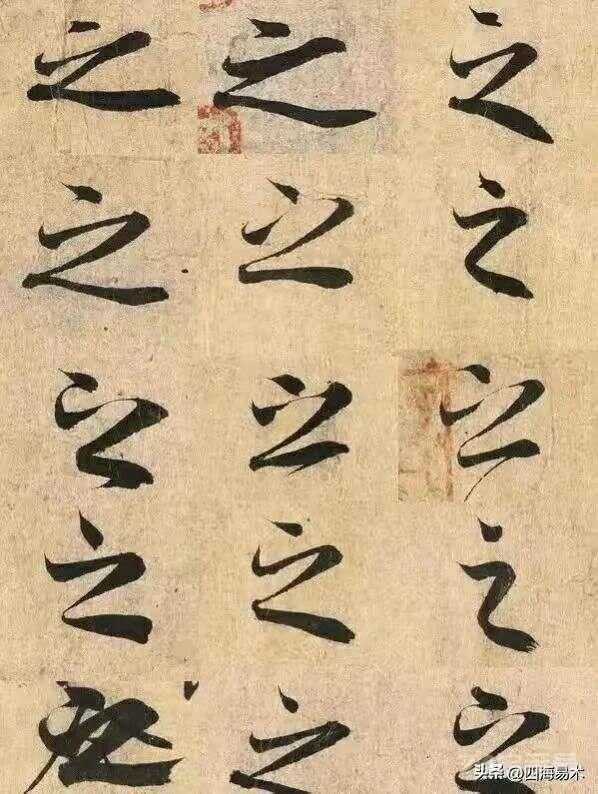 之 之 之
之 之 之
之 之 之
之 之 之
之 之 之
头条 @四海易木